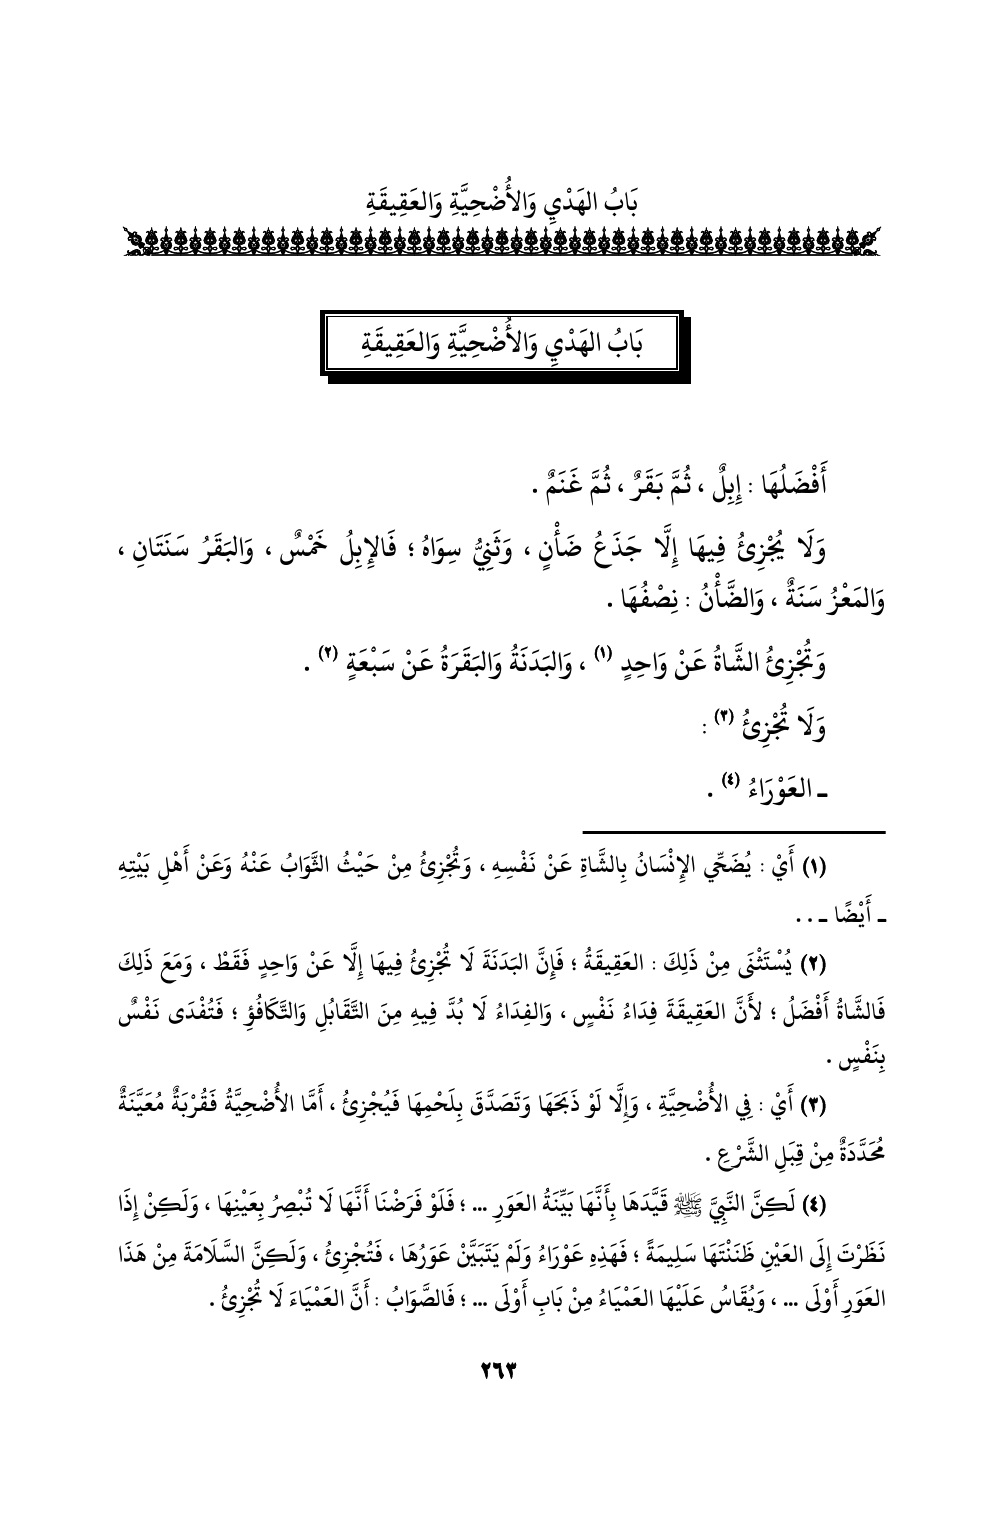 بَابُ الهَدْيِ وَالأُضْحِيَّةِ وَالعَقِيقَةِ
بَابُ الهَدْيِ وَالأُضْحِيَّةِ وَالعَقِيقَةِ
أَفْضَلُهَا : إِبِلٌ ، ثُمَّ بَقَرٌ ، ثُمَّ غَنَمٌ .
وَلَا يُجْزِئُ فِيهَا إِلَّا جَذَعُ ضَأْنٍ ، وَثَنِيُّ سِوَاهُ ؛ فَالإِبِلُ خَمْسٌ ، وَالبَقَرُ سَنَتَانِ ،
وَالمَعْزُ سَنَةٌ ، وَالضَّأْنُ : نِصْفُهَا .
وَتُجْزِئُ الشَّاةُ عَنْ وَاحِدٍ (١) ، وَالبَدَنَةُ وَالبَقَرَةُ عَنْ سَبْعَةٍ (٢) .
وَلَا تُجْزِئُ (٣) :
ـ العَوْرَاءُ (٤) .
(١) أَيْ : يُضَحِّي الإِنْسَانُ بِالشَّاةِ عَنْ نَفْسِهِ ، وَتُجْزِئُ مِنْ حَيْثُ الثَّوَابُ عَنْهُ وَعَنْ أَهْلِ بَيْتِهِ
ـ أَيْضًا ـ . .
(٢) يُسْتَثْنَى مِنْ ذَلِكَ : العَقِيقَةُ ؛ فَإِنَّ البَدَنَةَ لَا تُجْزِئُ فِيهَا إِلَّا عَنْ وَاحِدٍ فَقَطْ ، وَمَعَ ذَلِكَ
فَالشَّاةُ أَفْضَلُ ؛ لأَنَّ العَقِيقَةَ فِدَاءُ نَفْسٍ ، وَالفِدَاءُ لَا بُدَّ فِيهِ مِنَ التَّقَابُلِ وَالتَّكَافُؤِ ؛ فَتُفْدَى نَفْسٌ
بِنَفْسٍ .
(٣) أَيْ : فِي الأُضْحِيَّةِ ، وَإِلَّا لَوْ ذَبَحَهَا وَتَصَدَّقَ بِلَحْمِهَا فَيُجْزِئُ ، أَمَّا الأُضْحِيَّةُ فَقُرْبَةٌ مُعَيَّنَةٌ
مُحَدَّدَةٌ مِنْ قِبَلِ الشَّرْعِ .
(٤) لَكِنَّ النَّبِيَّ ﷺ قَيَّدَهَا بِأَنَّهَا بَيِّنَةُ العَوَرِ ... ؛ فَلَوْ فَرَضْنَا أَنَّهَا لَا تُبْصِرُ بِعَيْنِهَا ، وَلَكِنْ إِذَا
نَظَرْتَ إِلَى العَيْنِ ظَنَنْتَهَا سَلِيمَةً ؛ فَهَذِهِ عَوْرَاءُ وَلَمْ يَتَبَيَّنْ عَوَرُهَا ، فَتُجْزِئُ ، وَلَكِنَّ السَّلَامَةَ مِنْ هَذَا
العَوَرِ أَوْلَى ... ، وَيُقَاسُ عَلَيْهَا العَمْيَاءُ مِنْ بَابِ أَوْلَى ... ؛ فَالصَّوَابُ : أَنَّ العَمْيَاءَ لَا تُجْزِئُ .
٢٦٣